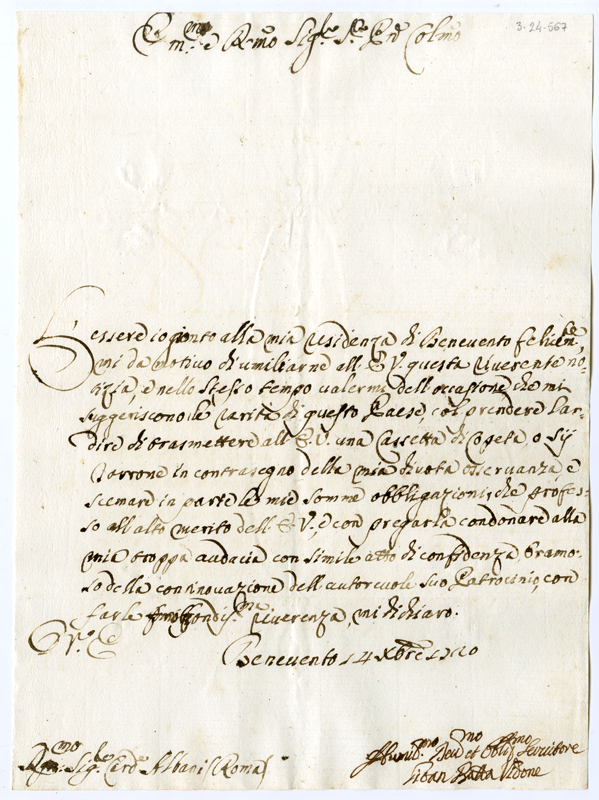 3-24-567
Em.mo e R.mo Sig.re S.re P.rõ Col.mo
L'essere io gionto alla mia residenza di Benevento felicem.te
mi da motivo di umiliarne all'E.V. questa riverente no
tizia, e nello stesso tempo valermi dell'occasione che mi
suggeriscono le rarità di questo Paese, col prendere l'ar
dire di trasmettere all'E.V. una Cassetta di Copeta, o sij
Torrone in contrasegno della mia divota osservanza, e
scemare in parte le mie somme obbligazioni, che profes-
so all'alto merito dell'E.V., e con pregarla condonare alla
mia troppa audacia con simile atto di confidenza, bramo-
so della continovazione dell'autorevole suo Patrocinio, con
farle profondis.ma riverenza, mi dichiaro.
Di V.E.
Benevento 14 Xbre 1720
Sig.r Card.e Albani (Roma)
Humil.mo Dev.mo et Obblig.mo Servitore
Gioan Batta Vidone